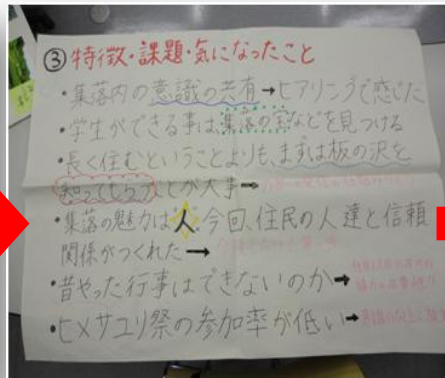 ③特徴・課題・気になったこと
・集落内の意識の共有→ヒアリングで感じた
・学生ができる事は集落の宝などを見つける
・長く住むということよりも、まずは板の沢を
知ってもらうことが大事→
・集落の魅力は人。今回、住民の人達と信頼
関係がつくれた→
・昔やった行事はできないのか→
・ヒメサユリ祭の参加率が低い→